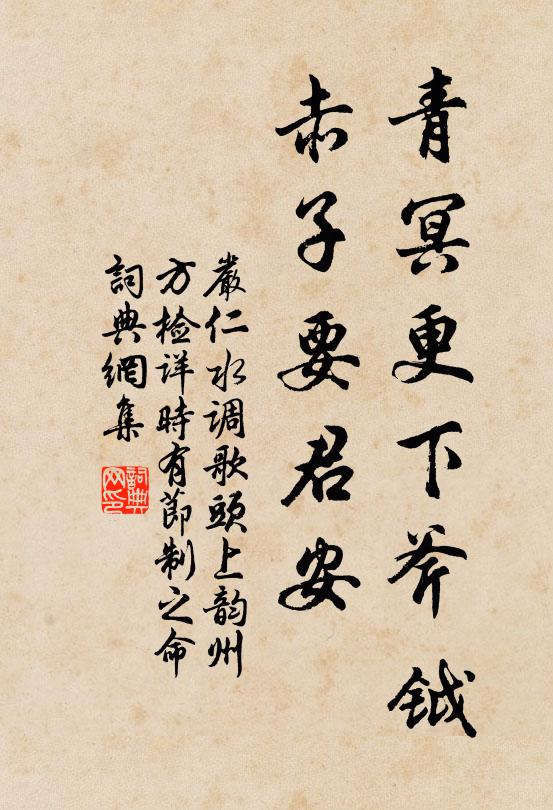 青冥更下斧钺
赤子要君安
嚴仁水调歌頭上韵州
方检详時有節制之命
詞典網集
詞典网印